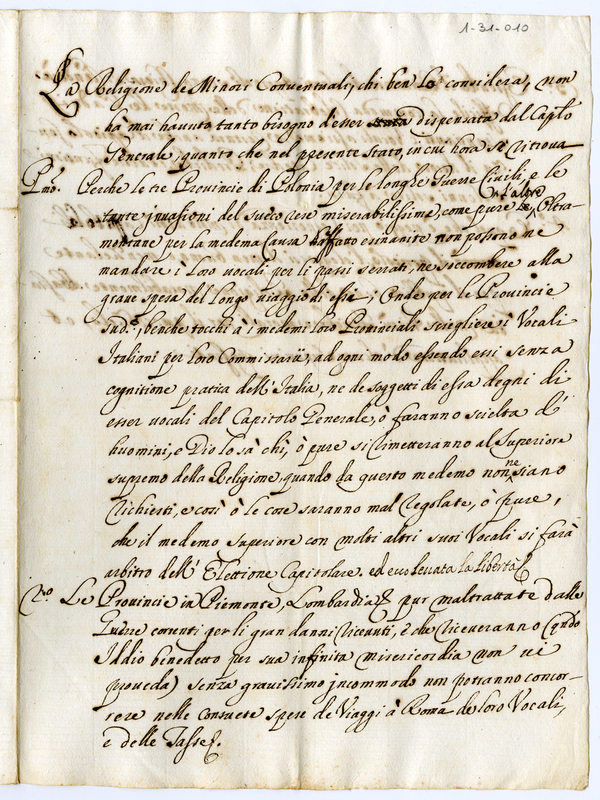 1-31-010
La Religione de Minori Conventuali, chi ben lo considera, non
hà mai havuto tanto bisogno d'esser dispensata dal Caplo
Generale, quanto che nel presente stato, in cui hora se ritroua
Pmo. Perche le tre Provincie di Polonia per le longhe Guerre Civili, e le
tante jnvasioni del sueco rese miserabilissime, come pure le altre Oltra-
montane per la medema causa affatto esinanite non possono ne
mandare i loro vocali per li passi serrati, ne soccombere alla
graue spesa del longo viaggio di essi; Onde per le Provincie
sud.e, benche tocchi à i medemi loro Provinciali sciegliere i Vocali
Italiani per loro Commissarij, ad ogni modo essendo essi senza
cognitione pratica dell'Italia, ne de soggetti di essa degni di
esser vocali del Capitolo Generale, ò faranno scielta d'
huomini, e Dio lo sà chi, ò pure si rimetteranno al Superiore
supremo della Religione, quando da questo medemo non ne siano
richiesti, e così ò le cose saranno mal regolate, ò pure,
che il medemo Superiore con molti altri suoi Vocali si farà
arbitro dell'Elettione Capitolare. ed ecco leuata la libertà
2do Le Provincie in Piemonte, Lombardia & pur maltrattate dalle
Guerre correnti per li gran danni riceuuti, e che riceveranno (qndo
Iddio benedetto per sua infinita misericordia non vi
proueda) senza grauissimo jncommodo non potranno concor-
rere nelle consuete spese de Viaggi à Roma de loro Vocali,
e delle Tasse &.